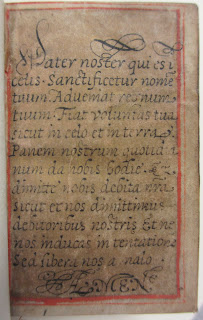 Pater noster qui es i
celis. Sanctificetur nome
tuum. Adueniat regnum
tuum. Fiat voluntas tua
sicut in celo et in terra
Panem nostrum quotidia
num da nobis hodie. Et
dimitte nobis debita nra
sicut et nos dimittimus
debitoribus nostris Et ne
nos inducas in tentatione
Sed libera nos a malo
AMEN